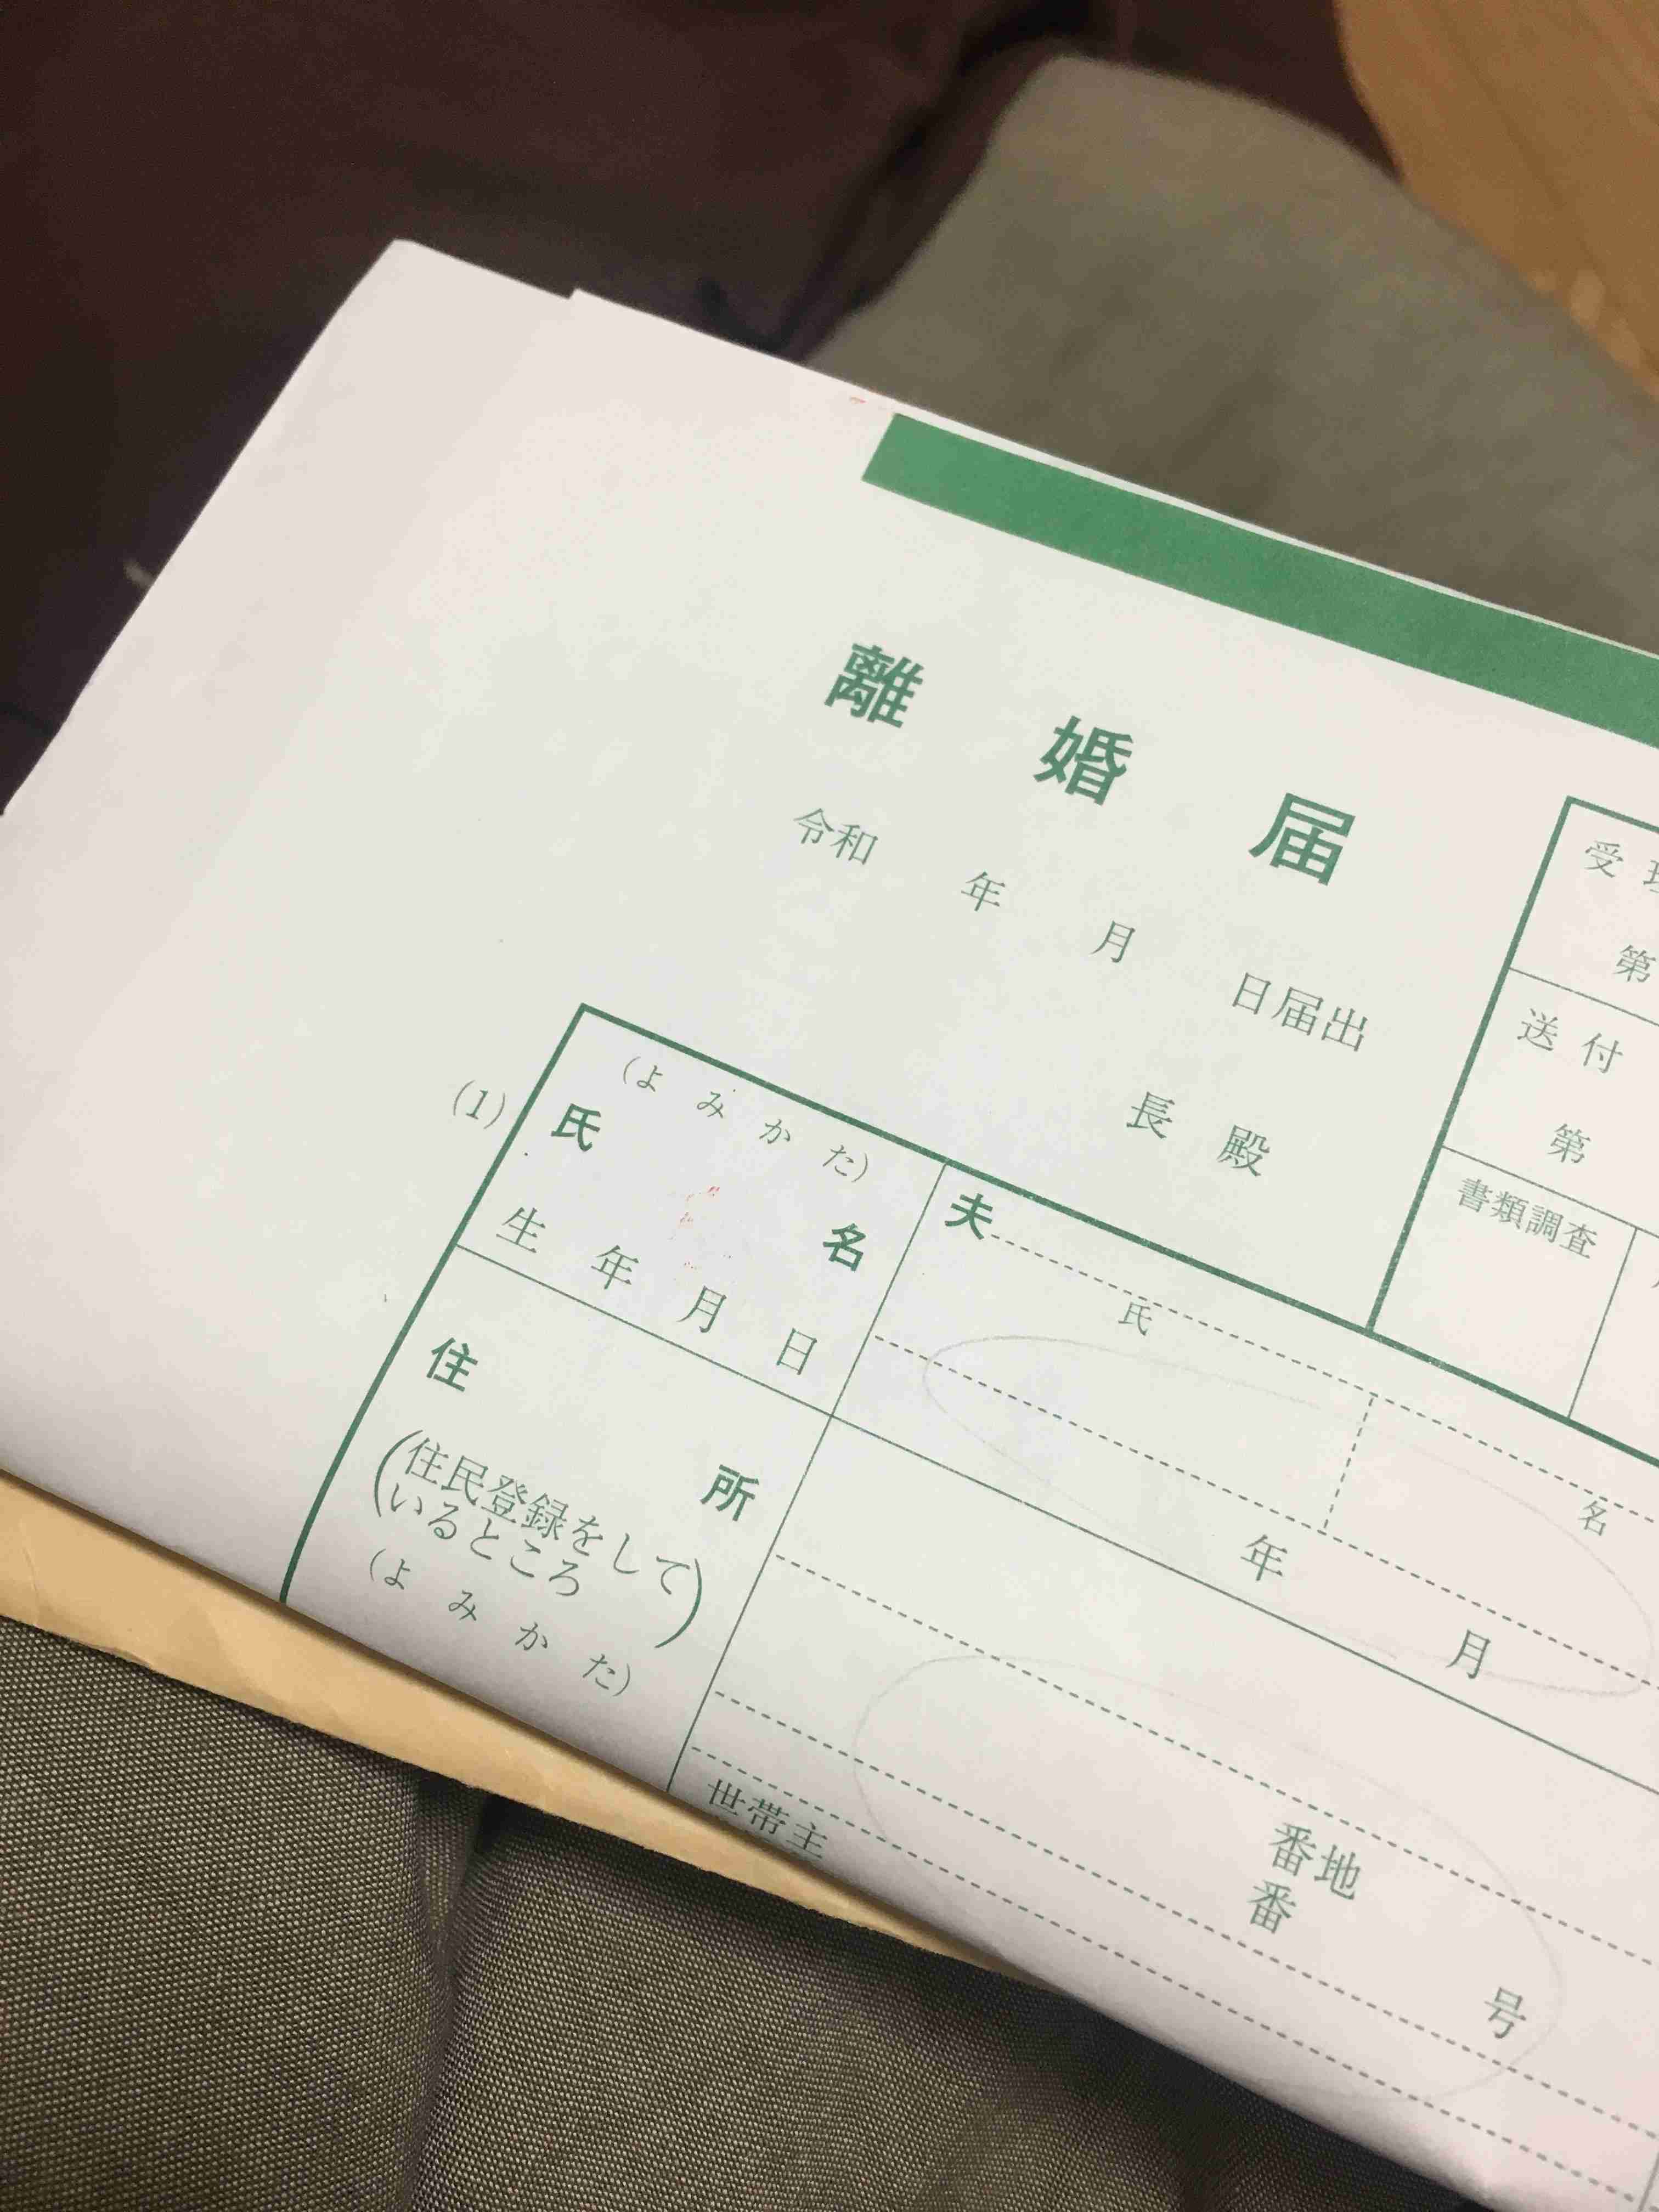 離婚届
令和 年 月 日届出
長殿
受
第
送付
第
書類調査
(1)
(よみかた)
氏名
生年月日
夫
氏
名
年 月
住所
(住民登録をして
いるところ)
(よみかた)
番地
番
号
世帯主